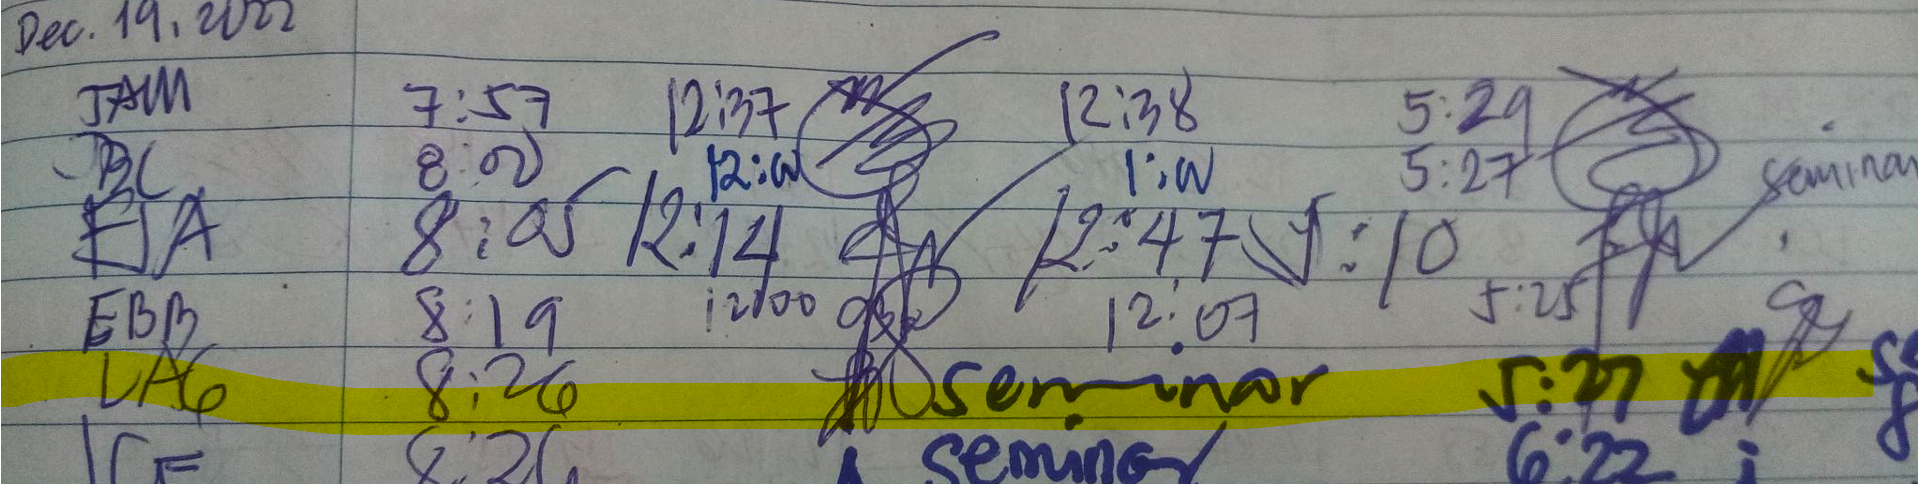 Dec. 19, 2022
JAM 7:57 12:37 12:38 5:29
BC 8:00 12:00 1:00 5:27 seminar
EJA 8:05 12:14 12:47 5:10
EBB 8:19 12:00 12:07 5:25
LAG 8:26 seminar 5:27
8:26 seminar 6:22